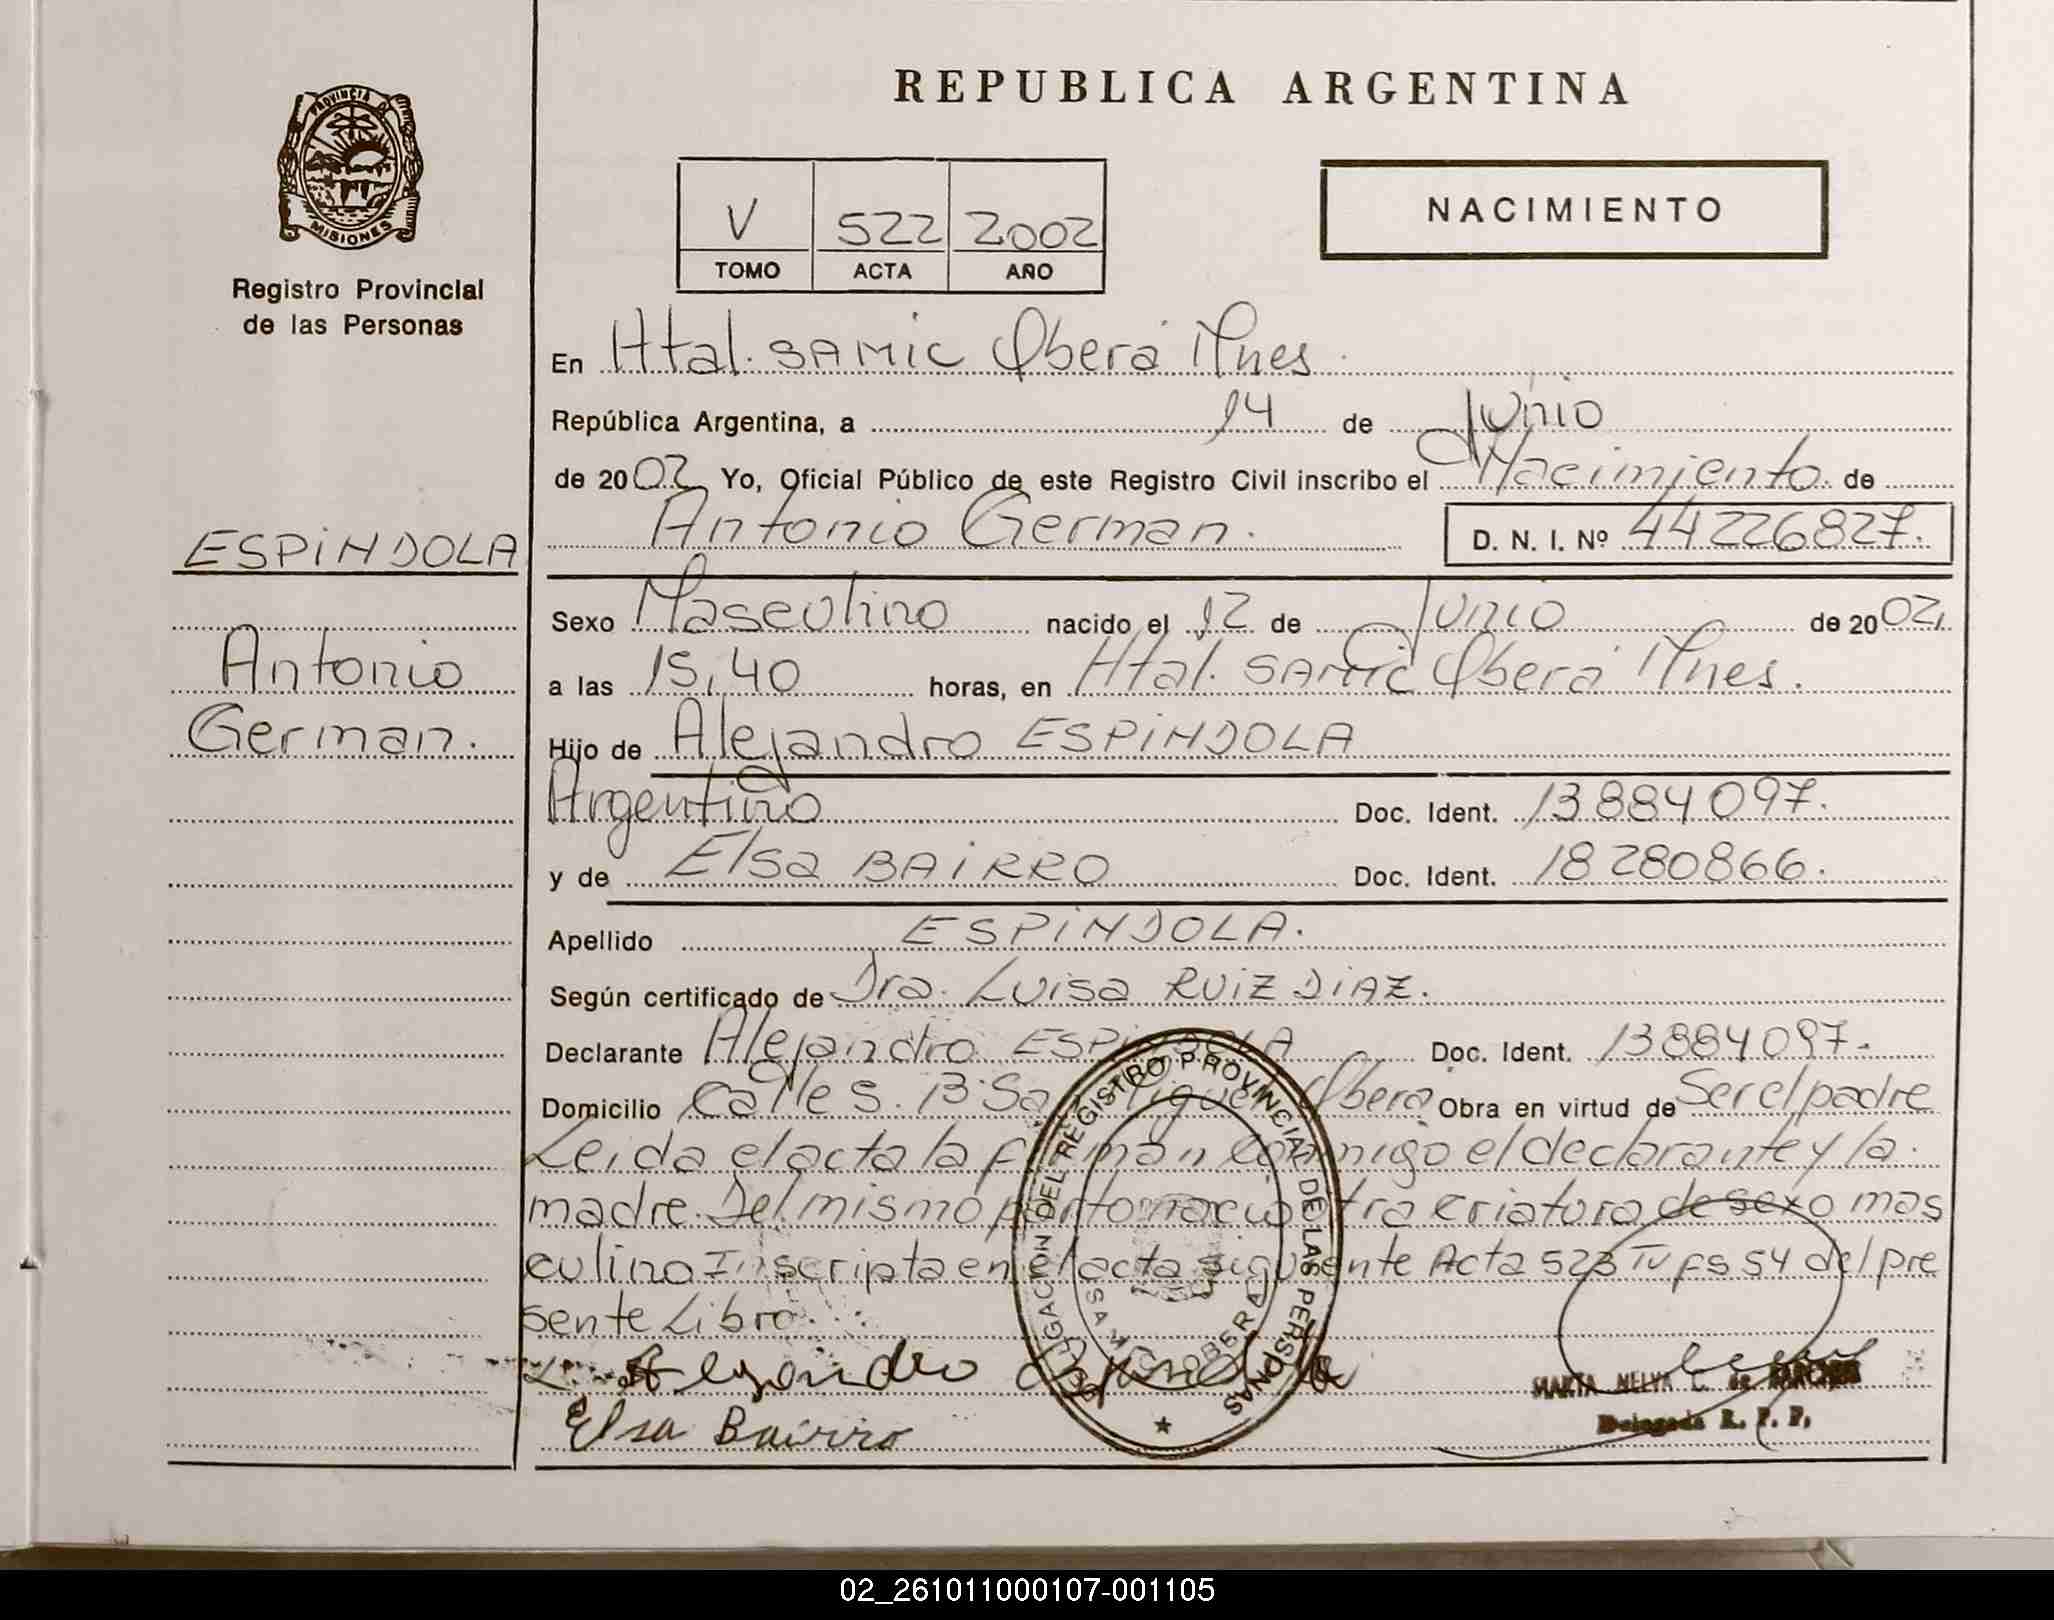 REPUBLICA ARGENTINA
PROVINCIA DE
MISIONES
Registro Provincial
de las Personas
V 522 2002
TOMO ACTA AÑO
NACIMIENTO
En Htal. SAMIC Oberá Mnes.
República Argentina, a 14 de Junio
de 2002 Yo, Oficial Público de este Registro Civil inscribo el Nacimiento de
Antonio German. D. N. I. Nº 44226827.
ESPINDOLA
Antonio
German.
Sexo Masculino nacido el 12 de Junio de 2002,
a las 15,40 horas, en Htal. SAMIC Oberá Mnes.
Hijo de Alejandro ESPINDOLA
Argentino Doc. Ident. 13884097.
y de Elsa BAIRRO Doc. Ident. 18280866.
Apellido ESPINDOLA.
Según certificado de Dra. Luisa RUIZ DIAZ.
Declarante Alejandro ESPINDOLA Doc. Ident. 13884097.
Domicilio Calle S. Bº San Miguel Oberá Obra en virtud de Ser el padre
Leida el acta la firman conmigo el declarante y la
madre. Del mismo parto nacio otra criatura de sexo mas
culino Inscripta en el acta siguiente Acta 523 TV fs 54 del pre
sente Libro.
Alejandro Espindola
Elsa Bairro
DELEGACION DEL REGISTRO PROVINCIAL DE LAS PERSONAS
SAMIC OBERA
MARTA NELVA C. de
Delegada R. P. P.
02_261011000107-001105